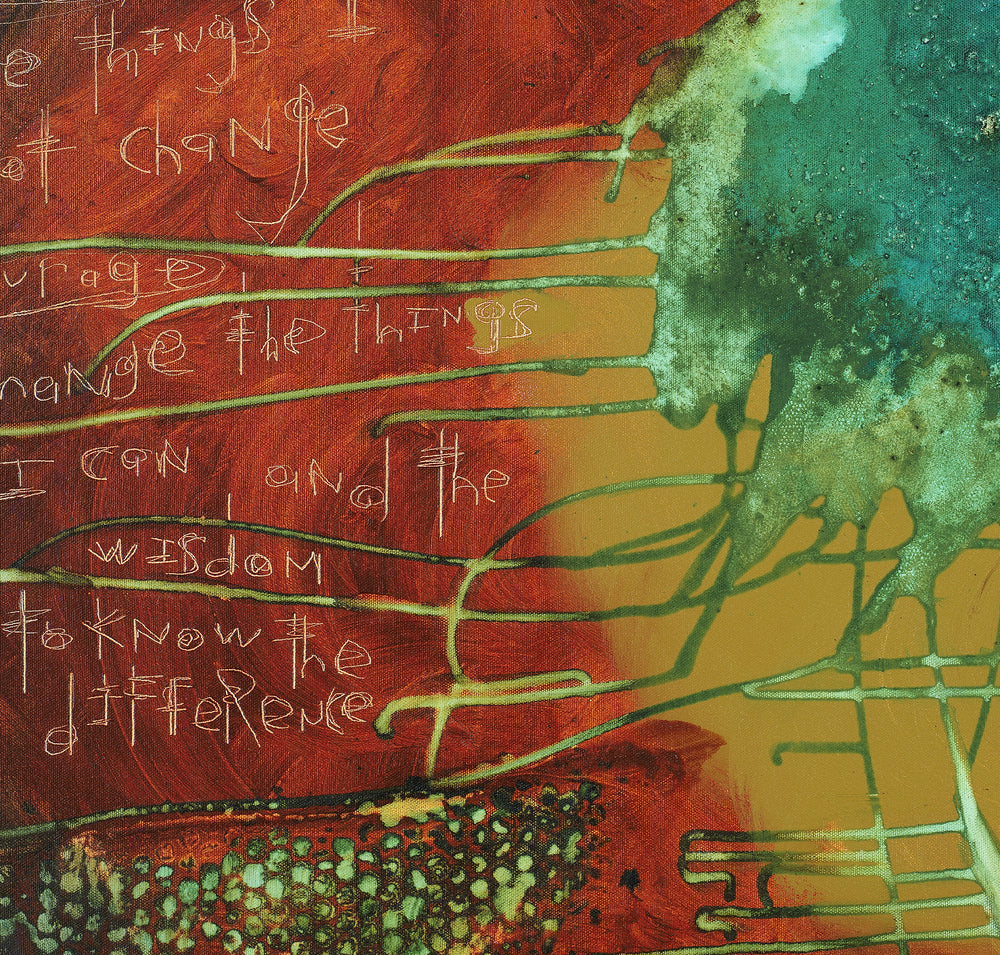 e things I
ot change
urage
hange the things
I can and the
wisdom
to know the
difference